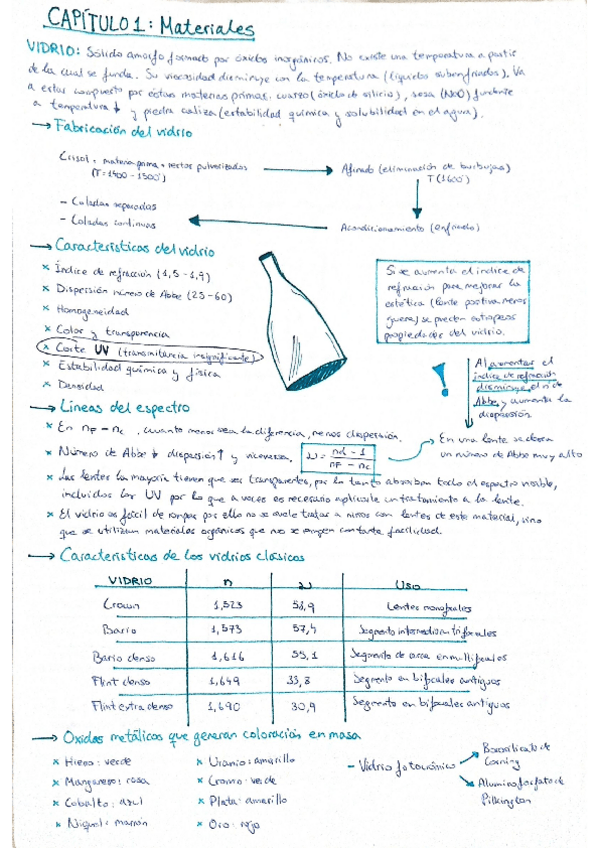 CAPÍTULO 1: Materiales
VIDRIO: Sólido amorfo formado por óxidos inorgánicos. No existe una temperatura a partir
de la cual se funda. Su viscosidad disminuye con la temperatura (líquidos subenfriados). Va
a estar compuesto por estas materias primas: cuarzo (óxido de silicio), sosa (NaO) fundente
a temperatura ↓ y piedra caliza (estabilidad química y solubilidad en el agua).
→ Fabricación del vidrio
Crisol: materia prima + restos pulverizados → Afinado (eliminación de burbujas)
(T=1400 - 1500°) T (1600°)
- Coladas separadas
- Coladas continuas ← Acondicionamiento (enfriado)
→ Características del vidrio
x Índice de refracción (1,5 - 1,9)
x Dispersión número de Abbe (23-60)
x Homogeneidad
x Color y transparencia
x Corte UV (transmitancia insignificante)
x Estabilidad química y física
x Densidad
Si se aumenta el índice de
refracción para mejorar la
estética (lente positiva menos
gruesa) se pierden
propiedades del vidrio.
! Al aumentar el
índice de refracción
disminuye el nº de
Abbe y aumenta la
dispersión
→ Líneas del espectro
x En nF - nC, cuanto menor sea la diferencia, menos dispersión.
x Número de Abbe ↓ dispersión ↑ y viceversa. ν = nd - 1 / nF - nC
→ En una lente se desea
un número de Abbe muy alto
x Las lentes la mayoría tienen que ser transparentes, por lo tanto absorben todo el espectro visible,
incluidos los UV por lo que a veces es necesario aplicarle un tratamiento a la lente.
x El vidrio es fácil de romper por ello no se suele tratar a niños con lentes de este material, sino
que se utilizan materiales orgánicos que no se rompen con tanta facilidad.
→ Características de los vidrios clásicos
VIDRIO n ν Uso
Crown 1,523 58,9 Lentes monofocales
Bario 1,573 57,4 Segmento intermedio en trifocales
Bario denso 1,616 55,1 Segmento de cerca en multifocales
Flint denso 1,649 33,8 Segmento en bifocales antiguos
Flint extra denso 1,690 30,9 Segmento en bifocales antiguos
→ Óxidos metálicos que generan coloración en masa
x Hierro: verde
x Manganeso: rosa
x Cobalto: azul
x Níquel: marrón
x Uranio: amarillo
x Cromo: verde
x Plata: amarillo
x Oro: rojo
- Vidrio fotocrómico
→ Borosilicato de
Corning
→ Aluminofosfato de
Pilkington